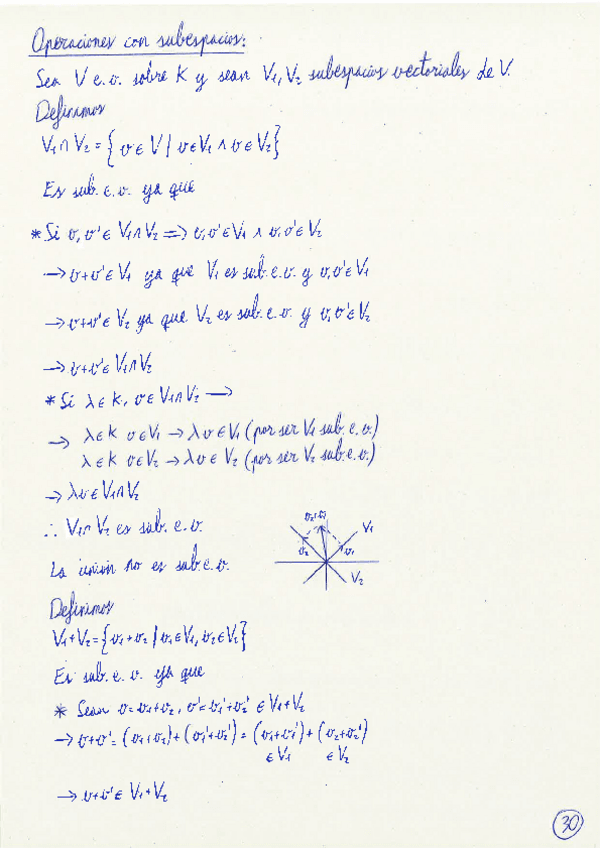 Operaciones con subespacios:
Sea V e.v. sobre K y sean V₁, V₂ subespacios vectoriales de V.
Definimos
V₁∩V₂ = {v∈V / v∈V₁ ∧ v∈V₂}
Es sub.e.v. ya que
* Si v,v'∈V₁∩V₂ ⇒ v,v'∈V₁ ∧ v,v'∈V₂
→ v+v'∈V₁ ya que V₁ es sub.e.v. y v,v'∈V₁
→ v+v'∈V₂ ya que V₂ es sub.e.v. y v,v'∈V₂
→ v+v'∈V₁∩V₂
* Si λ∈K, v∈V₁∩V₂ →
→ λ∈K v∈V₁ → λv∈V₁ (por ser V₁ sub.e.v.)
λ∈K v∈V₂ → λv∈V₂ (por ser V₂ sub.e.v.)
→ λv∈V₁∩V₂
∴ V₁∩V₂ es sub.e.v.
La unión no es sub.e.v.
v₂+v₁
V₁
v₂
v₁
V₂
Definimos
V₁+V₂ = {v₁+v₂ / v₁∈V₁, v₂∈V₂}
Es sub.e.v. ya que
* Sean v=v₁+v₂, v'=v₁'+v₂' ∈ V₁+V₂
→ v+v' = (v₁+v₂)+(v₁'+v₂') = (v₁+v₁')+(v₂+v₂')
∈V₁ ∈V₂
→ v+v'∈ V₁+V₂
30